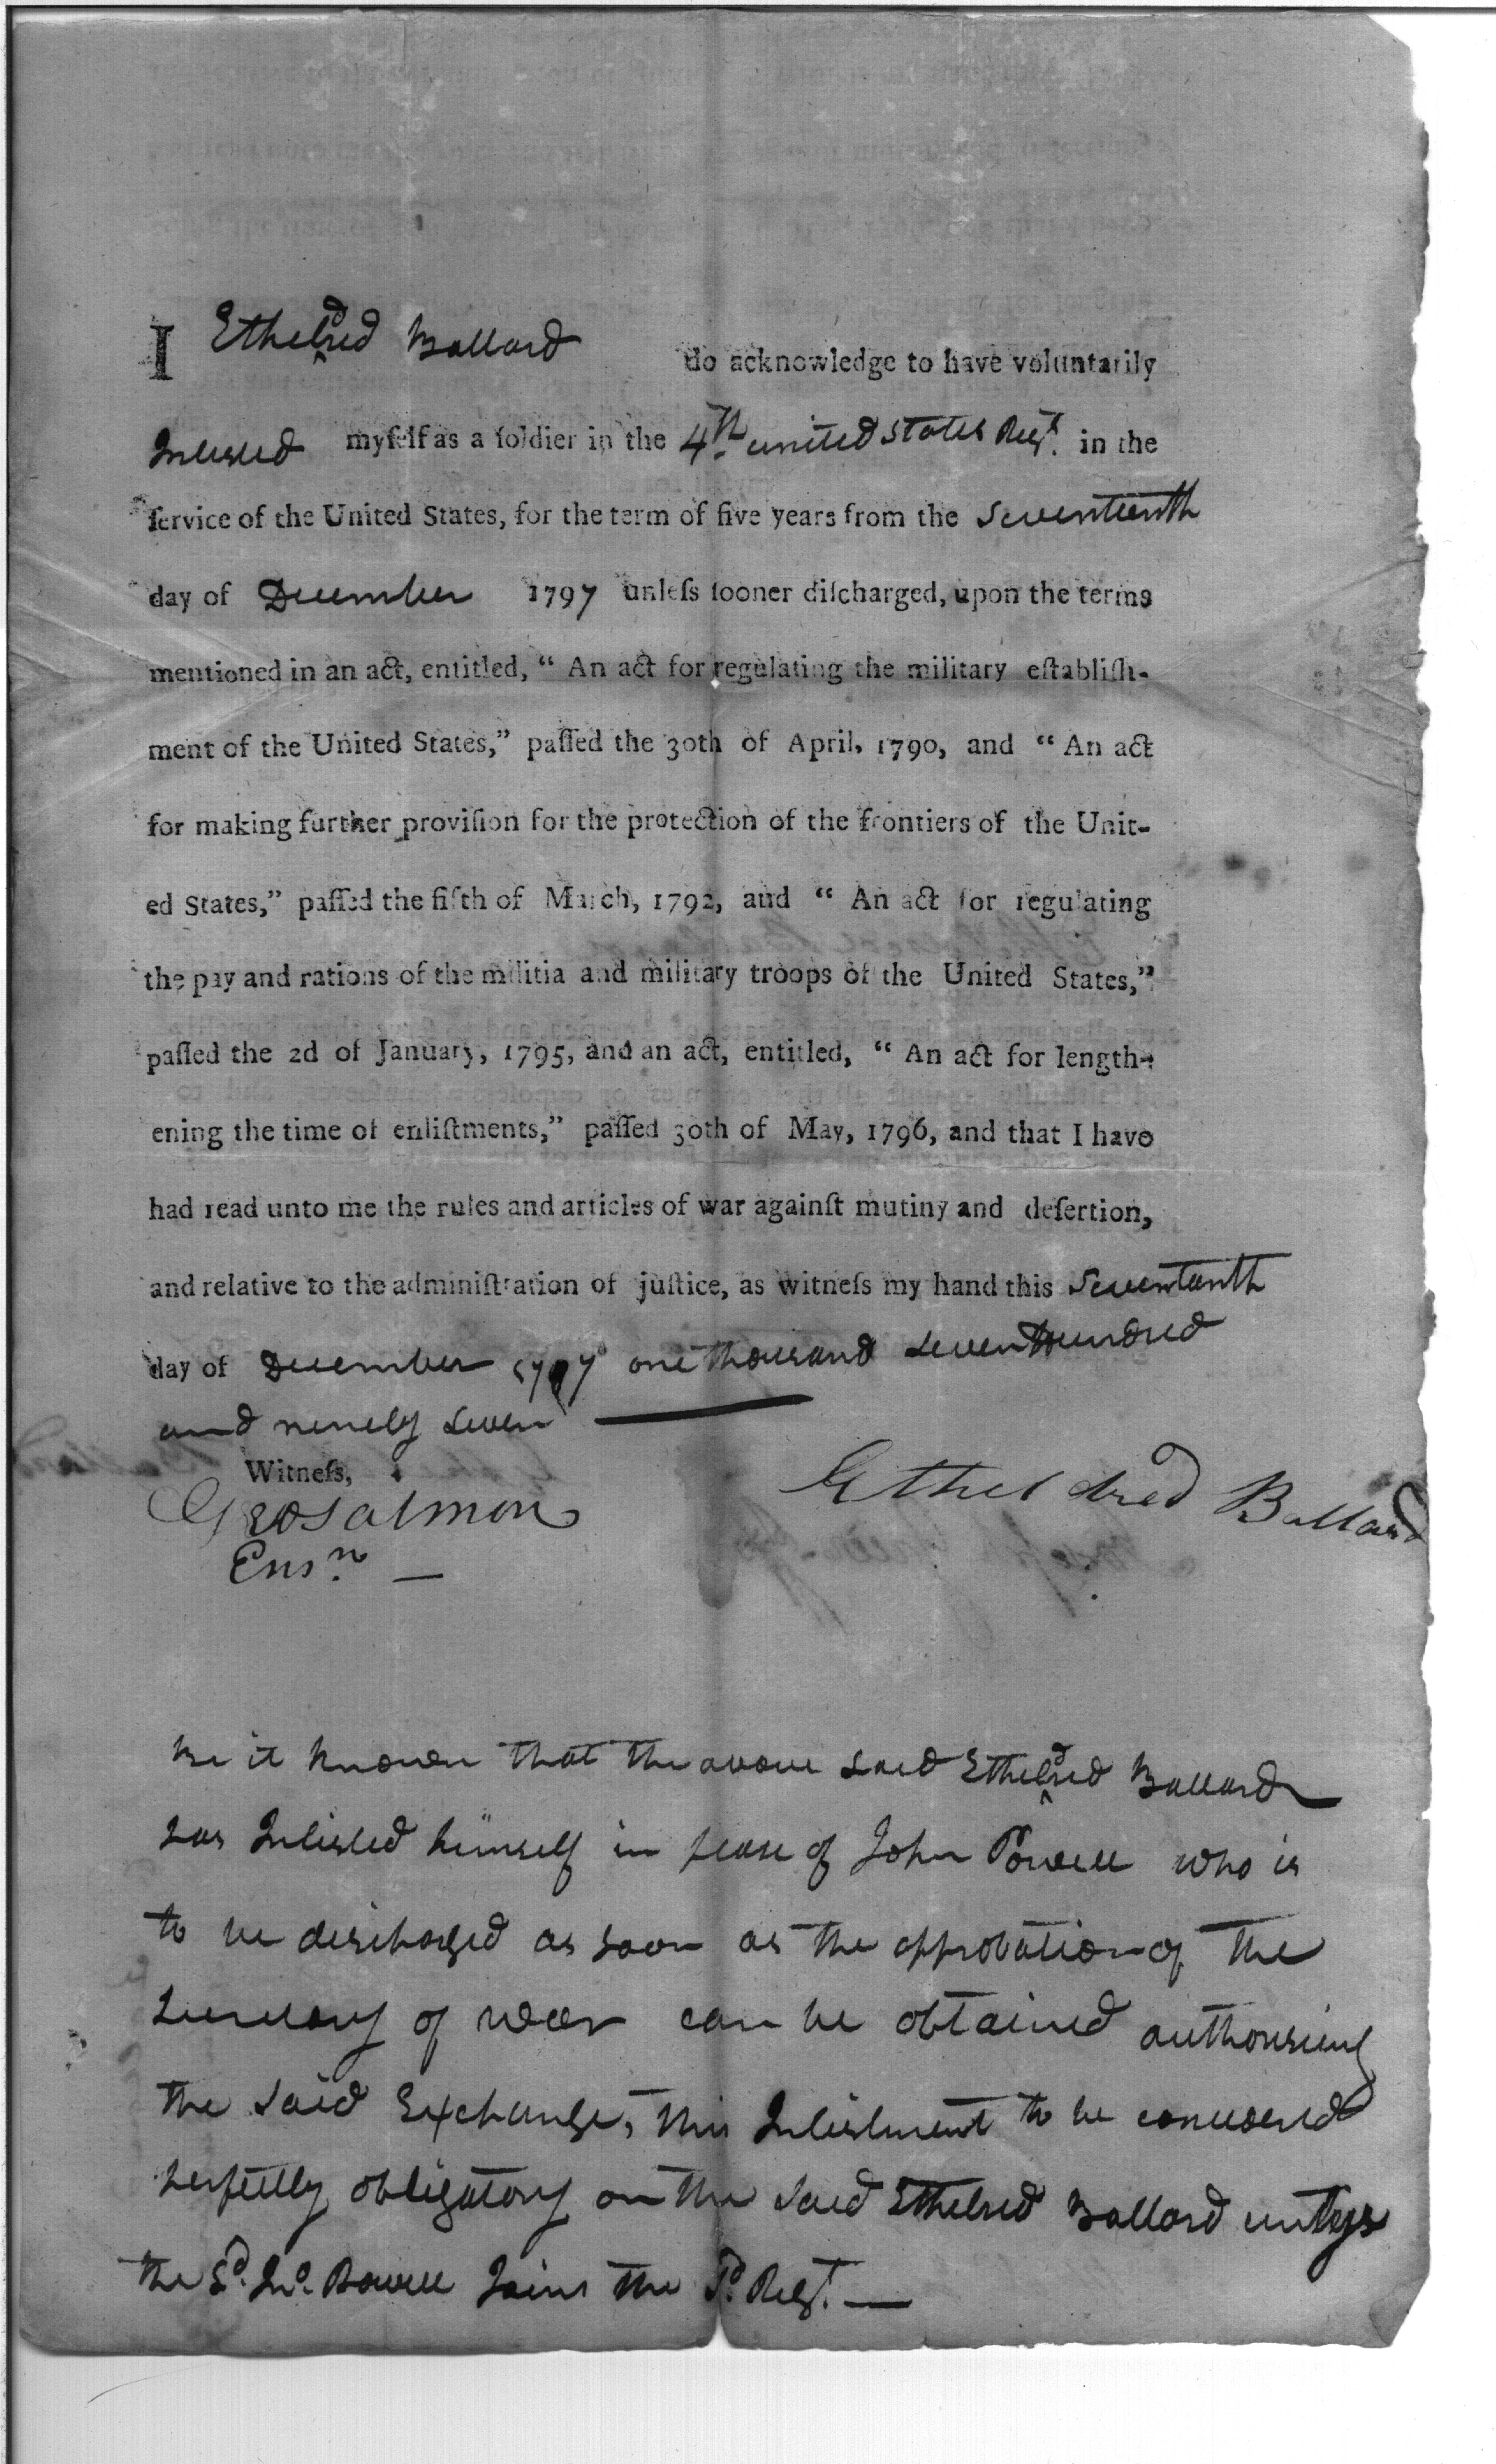 I Ethelᵈred Ballard do acknowledge to have voluntarily
Inlisted myſelf as a ſoldier in the 4th. united States Regt. in the
ſervice of the United States, for the term of five years from the Seventeenth
day of December 1797 unleſs ſooner diſcharged, upon the terms
mentioned in an act, entitled, “ An act for regulating the military eſtabliſh-
ment of the United States,” paſſed the 30th of April, 1790, and “ An act
for making further proviſion for the protection of the frontiers of the Unit-
ed States,” paſſed the fifth of March, 1792, and “ An act for regulating
the pay and rations of the militia and military troops of the United States,”
paſſed the 2d of January, 1795, and an act, entitled, “ An act for length-
ening the time of enliſtments,” paſſed 30th of May, 1796, and that I have
had read unto me the rules and articles of war againſt mutiny and deſertion,
and relative to the adminiſtration of juſtice, as witneſs my hand this Seventeenth
day of December 1797 one thousand seven Hundred
and ninety seven
Witneſs,
Geo Salmon
Ensn.
Etheldred Ballard
Be it known that the above said Ethelᵈred Ballard
has Inlisted himself in place of John Powell who is
to be discharged as soon as the approbation of the
Secretary of war can be obtained authorising
the said Exchange, this Inlistment to be considered
perfectly obligatory on the said Ethelred Ballard
the Sd. Jno. Powell Joins the Sd. Regt.